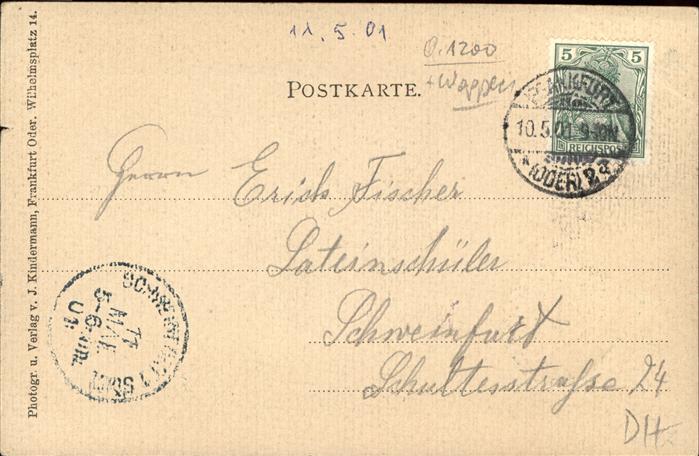 11. 5. 01
0.1200
+Wappen
POSTKARTE.
5 5
REICHSPOST
FRANKFURT
10.5.01.9-10N
(ODER) 2a
Herrn Erich Fischer
Lateinschüler
Schweinfurt
Schultesstraße 24
DH
SCHWEINFURT Stadt
11
MAI
5-6 Vm.
01
Photogr. u. Verlag v. J. Kindermann, Frankfurt Oder. Wilhelmsplatz 14.